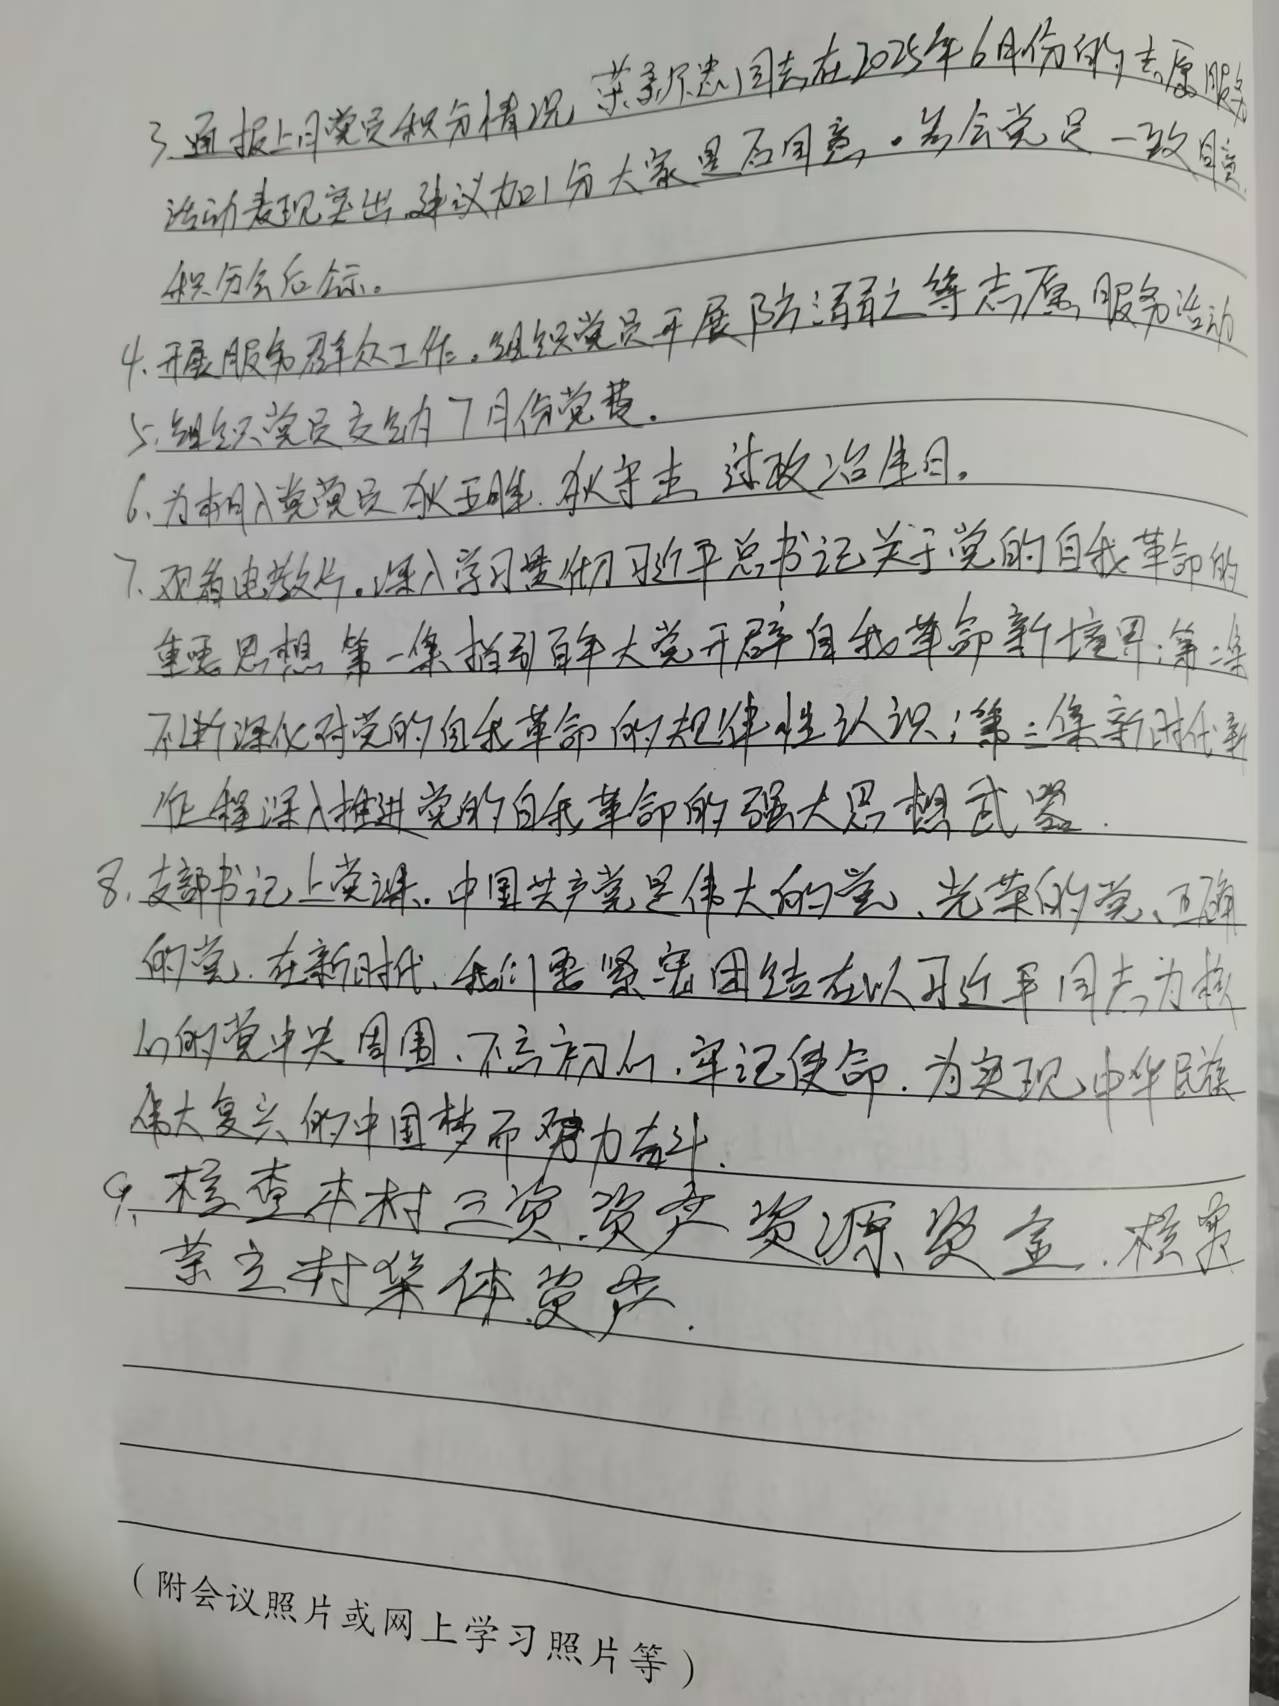 3.通报上月党员积分情况,同志在2025年6月份的志愿服务
活动表现突出,建议加1分大家是否同意。与会党员一致同意
积分会后公示。
4.开展服务群众工作。组织党员开展防溺水等志愿服务活动
5.组织党员交纳7月份党费.
6.为本月入党党员狄玉胜.狄守志过政治生日。
7.观看电教片。深入学习贯彻习近平总书记关于党的自我革命的
重要思想第一集指引百年大党开辟自我革命新境界;第二集
不断深化对党的自我革命的规律性认识;第三集新时代新
征程深入推进党的自我革命的强大思想武器.
8.支部书记上党课.中国共产党是伟大的党、光荣的党、正确
的党.在新时代、我们要紧密团结在以习近平同志为核
心的党中央周围、不忘初心、牢记使命.为实现中华民族
伟大复兴的中国梦而努力奋斗.
9.核查本村三资.资产资源资金.核实
村集体资产.
(附会议照片或网上学习照片等)